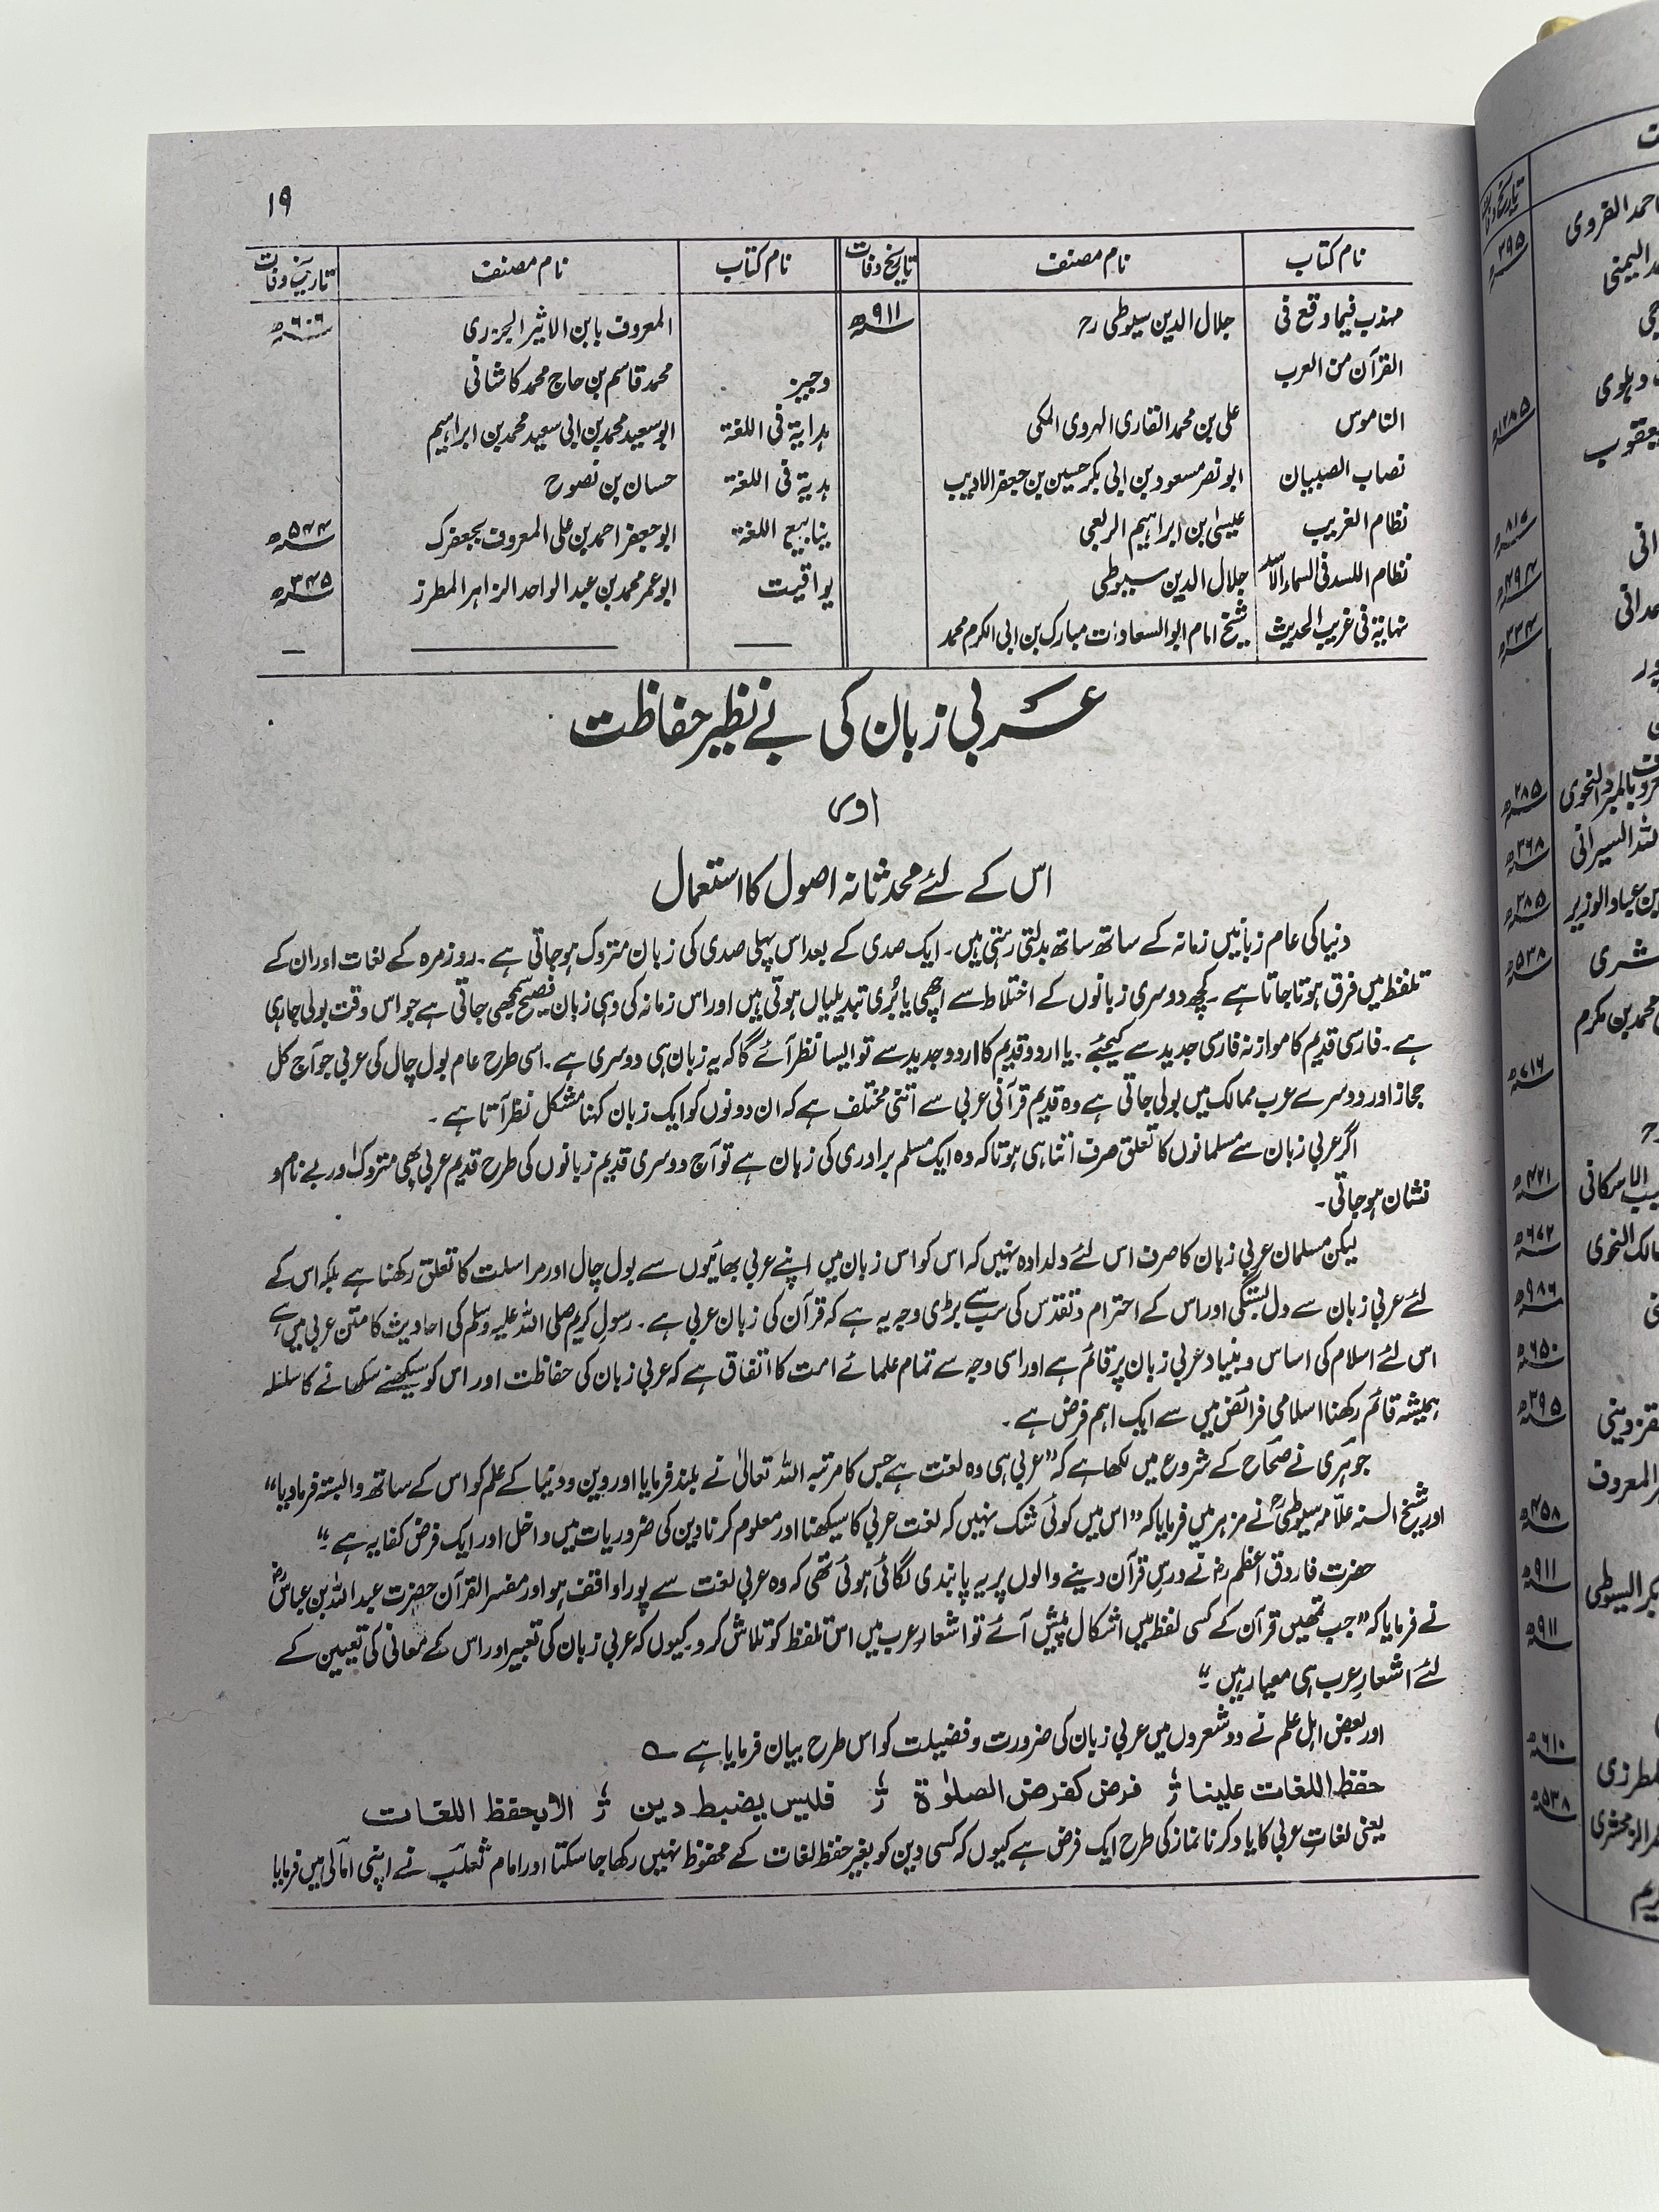 ۱۹
نام کتاب نام مصنف تاریخ وفات نام کتاب نام مصنف تاریخ وفات
مہذب فیما وقع فی جلال الدین سیوطی رح ۹۱۱ھ المعروف بابن الاثیر الجزری ۶۰۶ھ
القرآن من العرب وجیز محمد قاسم بن حاج محمد کاشانی
الناموس علی بن محمد القاری الہروی المکی ہدایۃ فی اللغۃ ابو سعید محمد بن ابی سعید محمد بن ابراہیم
نصاب الصبیان ابو نصر مسعود بن ابی بکر حسین بن جعفر الادیب ہدیۃ فی اللغۃ حسان بن نصوح
نظام الغریب عیسیٰ بن ابراہیم الربعی ینابیع اللغۃ ابو جعفر احمد بن علی المعروف بجعفرک ۵۴۴ھ
نظام اللسد فی السماء الاسد جلال الدین سیوطی یواقیت ابو عمر محمد بن عبد الواحد الزاہر المطرز ۳۴۵ھ
نہایۃ فی غریب الحدیث شیخ امام ابو السعادات مبارک بن ابی الکرم محمد
عربی زبان کی بے نظیر حفاظت
اور
اس کے لئے محدثانہ اصول کا استعمال
دنیا کی عام زبانیں زمانہ کے ساتھ ساتھ بدلتی رہتی ہیں۔ ایک صدی کے بعد اس پہلی صدی کی زبان متروک ہو جاتی ہے۔ روزمرہ کے لغات اور ان کے
تلفظ میں فرق ہوتا جاتا ہے۔ کچھ دوسری زبانوں کے اختلاط سے اچھی یا بُری تبدیلیاں ہوتی ہیں اور اس زمانہ کی وہی زبان فصیح سمجھی جاتی ہے جو اس وقت بولی جارہی
ہے۔ فارسی قدیم کا موازنہ فارسی جدید سے کیجئے۔ یا اردو قدیم کا اردو جدید سے تو ایسا نظر آئے گا کہ یہ زبان ہی دوسری ہے۔ اسی طرح عام بول چال کی عربی جو آج کل
حجاز اور دوسرے عرب ممالک میں بولی جاتی ہے وہ قدیم قرآنی عربی سے اتنی مختلف ہے کہ ان دونوں کو ایک زبان کہنا مشکل نظر آتا ہے۔
اگر عربی زبان سے مسلمانوں کا تعلق صرف اتنا ہی ہوتا کہ وہ ایک مسلم برادری کی زبان ہے تو آج دوسری قدیم زبانوں کی طرح قدیم عربی بھی متروک اور بے نام و
نشان ہو جاتی۔
لیکن مسلمان عربی زبان کا صرف اس لئے دلدادہ نہیں کہ اس کو اس زبان میں اپنے عربی بھائیوں سے بول چال اور مراسلت کا تعلق رکھنا ہے بلکہ اس کے
لئے عربی زبان سے دل بستگی اور اس کے احترام و تقدس کی سب سے بڑی وجہ یہ ہے کہ قرآن کی زبان عربی ہے۔ رسول کریم صلی اللہ علیہ وسلم کی احادیث کا متن عربی میں ہے
اس لئے اسلام کی اساس و بنیاد عربی زبان پر قائم ہے اور اسی وجہ سے تمام علمائے امت کا اتفاق ہے کہ عربی زبان کی حفاظت اور اس کو سیکھنے سکھانے کا سلسلہ
ہمیشہ قائم رکھنا اسلامی فرائض میں سے ایک اہم فرض ہے۔
جوہری نے صحاح کے شروع میں لکھا ہے کہ ”عربی ہی وہ لغت ہے جس کا مرتبہ اللہ تعالیٰ نے بلند فرمایا اور دین و دنیا کے علم کو اس کے ساتھ وابستہ فرمادیا“
اور شیخ السنہ علّامہ سیوطیؒ نے مزہر میں فرمایا کہ ”اس میں کوئی شک نہیں کہ لغت عربی کا سیکھنا اور معلوم کرنا دین کی ضروریات میں داخل اور ایک فرض کفایہ ہے۔“
حضرت فاروق اعظم رض نے درس قرآن دینے والوں پر یہ پابندی لگائی ہوئی تھی کہ وہ عربی لغت سے پورا واقف ہو اور مفسر القرآن حضرت عبد اللہ بن عباس رض
نے فرمایا کہ ”جب تمھیں قرآن کے کسی لفظ میں اشکال پیش آئے تو اشعار عرب میں اس تلفظ کو تلاش کرو۔ کیوں کہ عربی زبان کی تعبیر اور اس کے معانی کی تعیین کے
لئے اشعارِ عرب ہی معیار ہیں۔“
اور بعض اہل علم نے دو شعروں میں عربی زبان کی ضرورت و فضیلت کو اس طرح بیان فرمایا ہے ؎
حفظ اللغات علینا فرض کفرض الصلوٰۃ فلیس یضبط دین الا بحفظ اللغات
یعنی لغاتِ عربی کا یاد کرنا نماز کی طرح ایک فرض ہے کیوں کہ کسی دین کو بغیر حفظ لغات کے محفوظ نہیں رکھا جاسکتا اور امام ثعلب نے اپنی امالی میں فرمایا